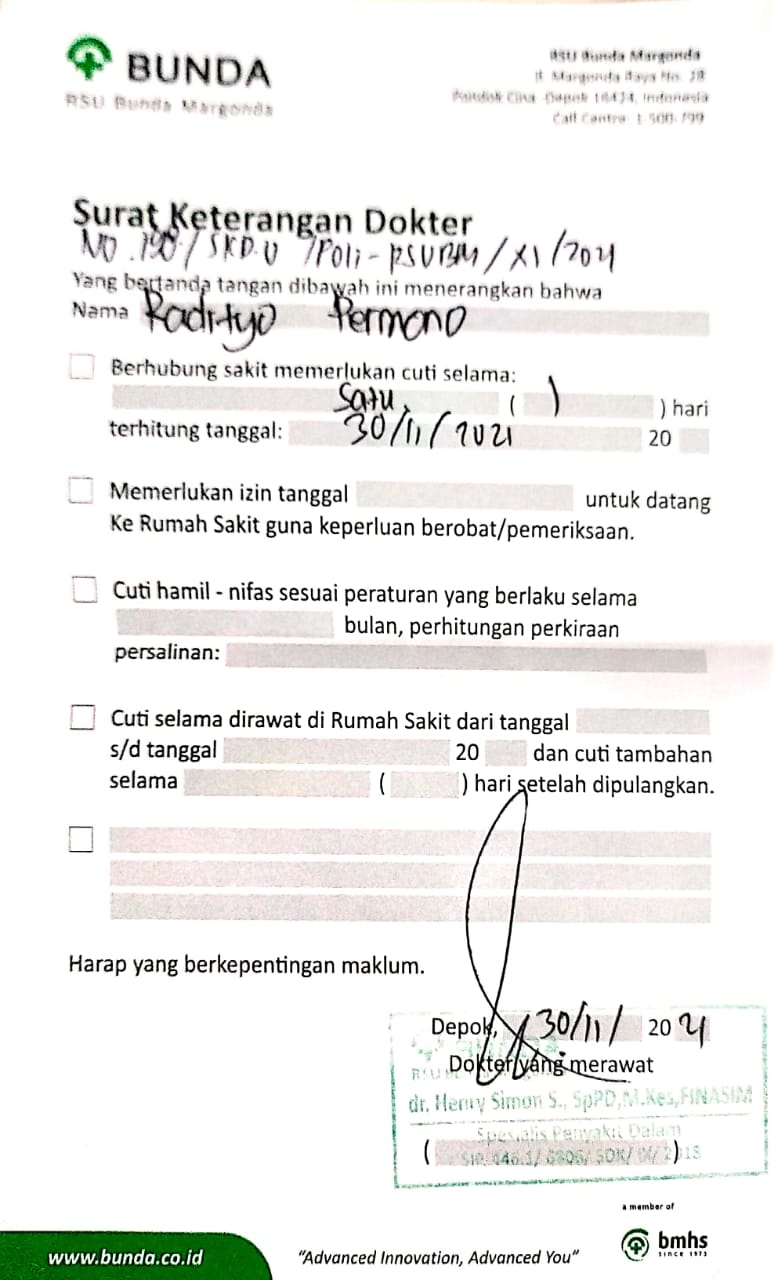 BUNDA
RSU Bunda Margonda
RSU Bunda Margonda
Jl. Margonda Raya No. 28
Pondok Cina, Depok 16424, Indonesia
Call Centre: 1-500-799
Surat Keterangan Dokter
NO. 190 / SKD.U /Poli-RSUBM / XI / 2021
Yang bertanda tangan dibawah ini menerangkan bahwa
Nama Radityo Permono
Berhubung sakit memerlukan cuti selama:
Satu ( 1 ) hari
terhitung tanggal: 30/11/2021 20
Memerlukan izin tanggal untuk datang
Ke Rumah Sakit guna keperluan berobat/pemeriksaan.
Cuti hamil - nifas sesuai peraturan yang berlaku selama
bulan, perhitungan perkiraan
persalinan:
Cuti selama dirawat di Rumah Sakit dari tanggal
s/d tanggal 20 dan cuti tambahan
selama ( ) hari setelah dipulangkan.
Harap yang berkepentingan maklum.
Depok, 30/11/ 2021
Dokter yang merawat
dr. Henry Simon S., SpPD,M.Kes,FINASIM
Spesialis Penyakit Dalam
( )
a member of
bmhs
SINCE 1973
www.bunda.co.id
"Advanced Innovation, Advanced You"